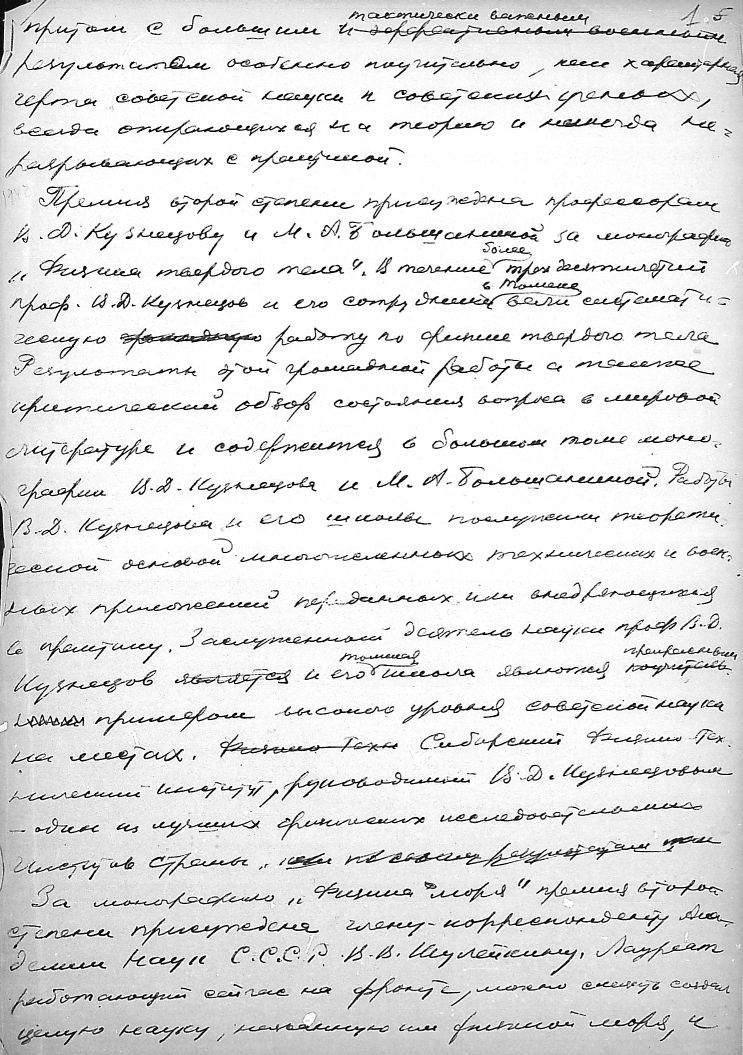 тактически важным
1 5
притом с большим и эффективным военным
результатом особенно поучительно, как характерная
черта советской науки и советских ученых,
всегда опирающихся на теорию и никогда не
разрывающих с практикой.
Премия второй степени присуждена профессорам
В. Д. Кузнецову и М. А. Большаниной за монографию
более
„Физика твердого тела". В течение трех десятилетий
в Томске
проф. В. Д. Кузнецов и его сотрудники вели системати-
ческую работу по физике твердого тела
Результаты этой громадной работы а также
критический обзор состояния вопроса в мировой
литературе и содержится в большом томе моно-
графии В. Д. Кузнецова и М. А. Большаниной. Работы
В. Д. Кузнецова и его школы послужили теорети-
ческой основой многочисленных технических и воен-
ных приложений переданных или внедряющихся
в практику. Заслуженный деятель науки проф В. Д.
томская прекрасным
Кузнецов является и его школа являются поучитель-
примером высокого уровня советской науки
на местах. Физико-Техн Сибирский Физико-Тех-
нический институт, руководимый В. Д. Кузнецовым
— один из лучших физических исследовательских
институтов страны,
За монографию „Физика моря" премия второй
степени присуждена члену-корреспонденту Ака-
демии Наук С.С.С.Р. В. В. Шулейкину. Лауреат
работающий сейчас на фронте, можно сказать создал
целую науку, названную им физикой моря, и